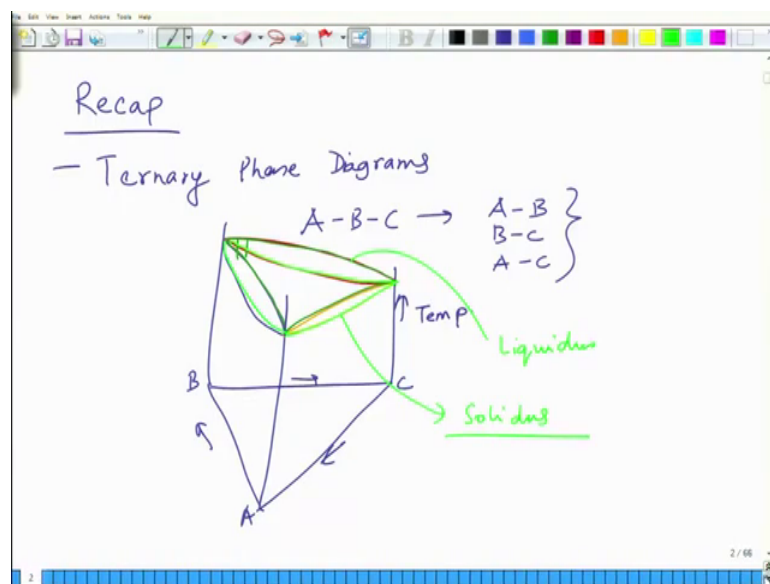 File Edit View Insert Actions Tools Help
B I
Recap
— Ternary Phase Diagrams
A-B-C → A-B
B-C
A-C
↑ Temp
Liquidus
B → C
Solidus
A
2 / 66
2